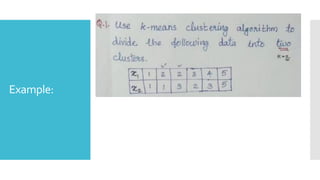 Example:
Q.1. Use k-means clustering algorithm to
divide the following data into two
clusters.
K=2
x1 1 2 2 3 4 5
x2 1 1 3 2 3 5